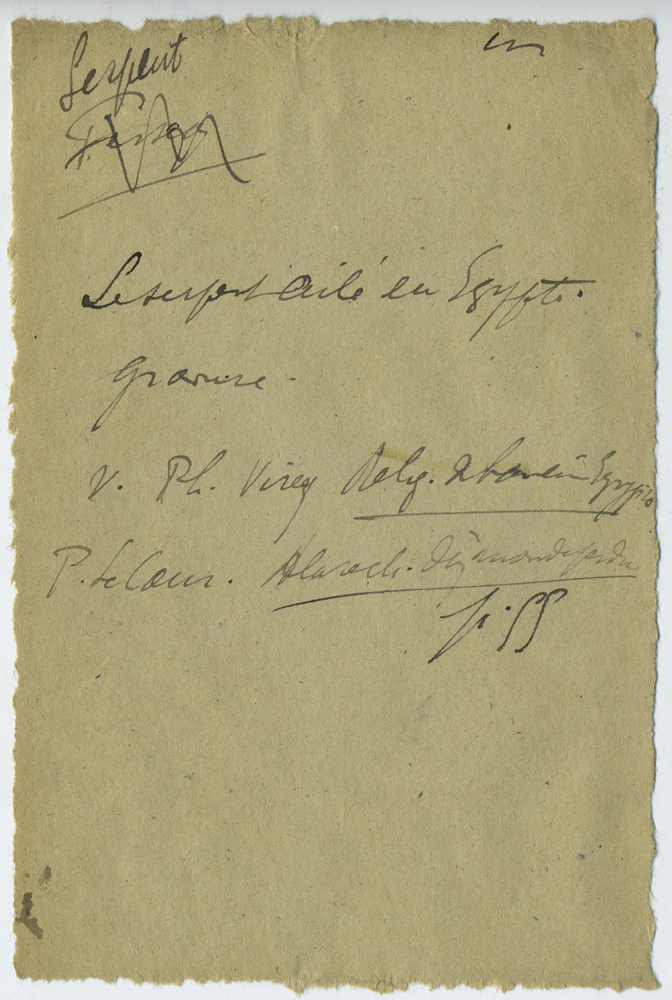 Serpent
Le serpent ailé en Egypte.
Gravure.
v. Ph. Virey Relig. de l'ancien Egypte
P. Le Cour. A la rech. d'un monde perdu
p. 55